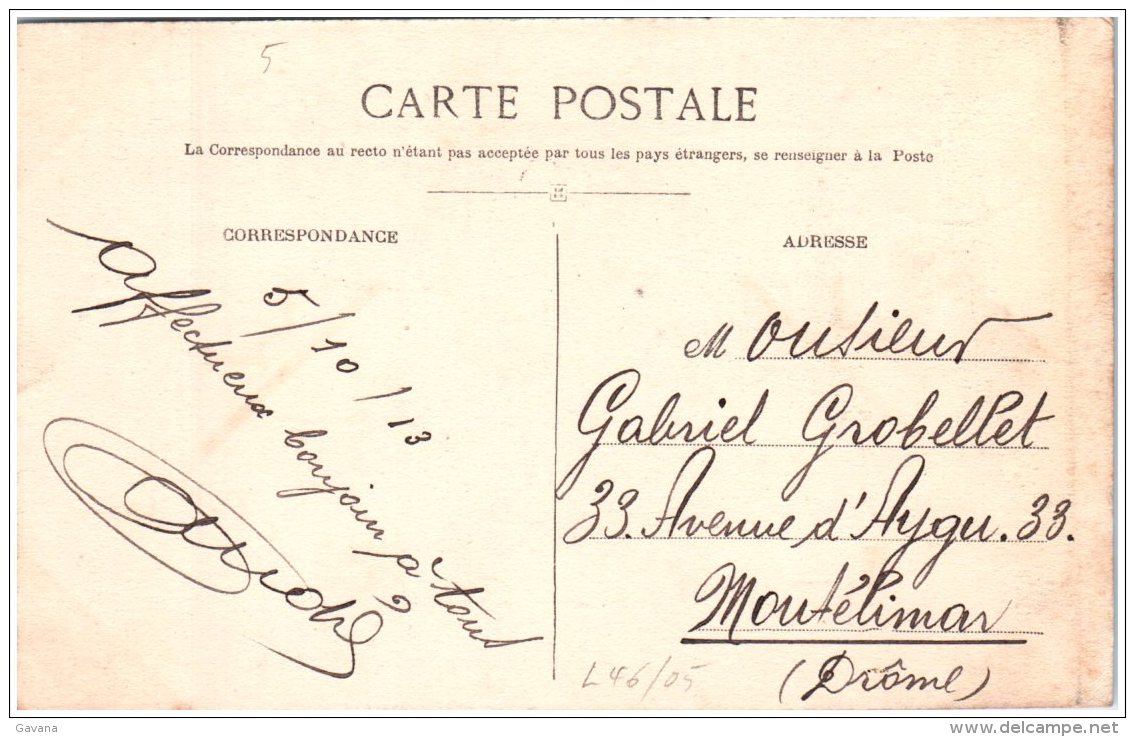 5
CARTE POSTALE
La Correspondance au recto n'étant pas acceptée par tous les pays étrangers, se renseigner à la Poste
CORRESPONDANCE
5/10/13
Affectueux bonjour à tous
ADRESSE
Monsieur
Gabriel Grobellet
33. Avenue d'Aygu. 33.
Montélimar
(Drôme)
L46/05
Gavana
www.delcampe.net